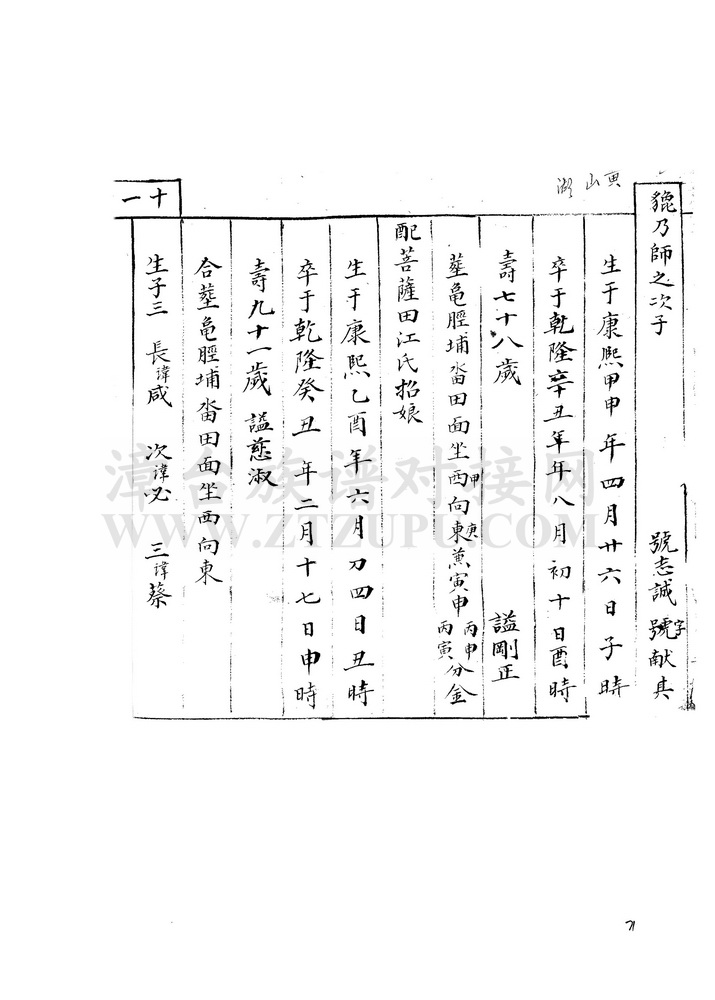 貔乃師之次子 號志誠字號献其
生于康熙甲申年四月廿六日子時
卒于乾隆辛丑年年八月初十日酉時
壽七十八歲 諡剛正
塟亀脛埔畓田面坐西甲向東庚兼寅申丙申丙寅分金
配菩薩田江氏招娘
生于康熙乙酉年六月刀四日丑時
卒于乾隆癸丑年二月十七日申時
壽九十一歲 諡慈淑
合塟亀脛埔畓田面坐西向東
生子三 長諱咸 次諱必 三諱蔡
十一
漳台族谱对接网
WWW.ZTZUPU.COM
71